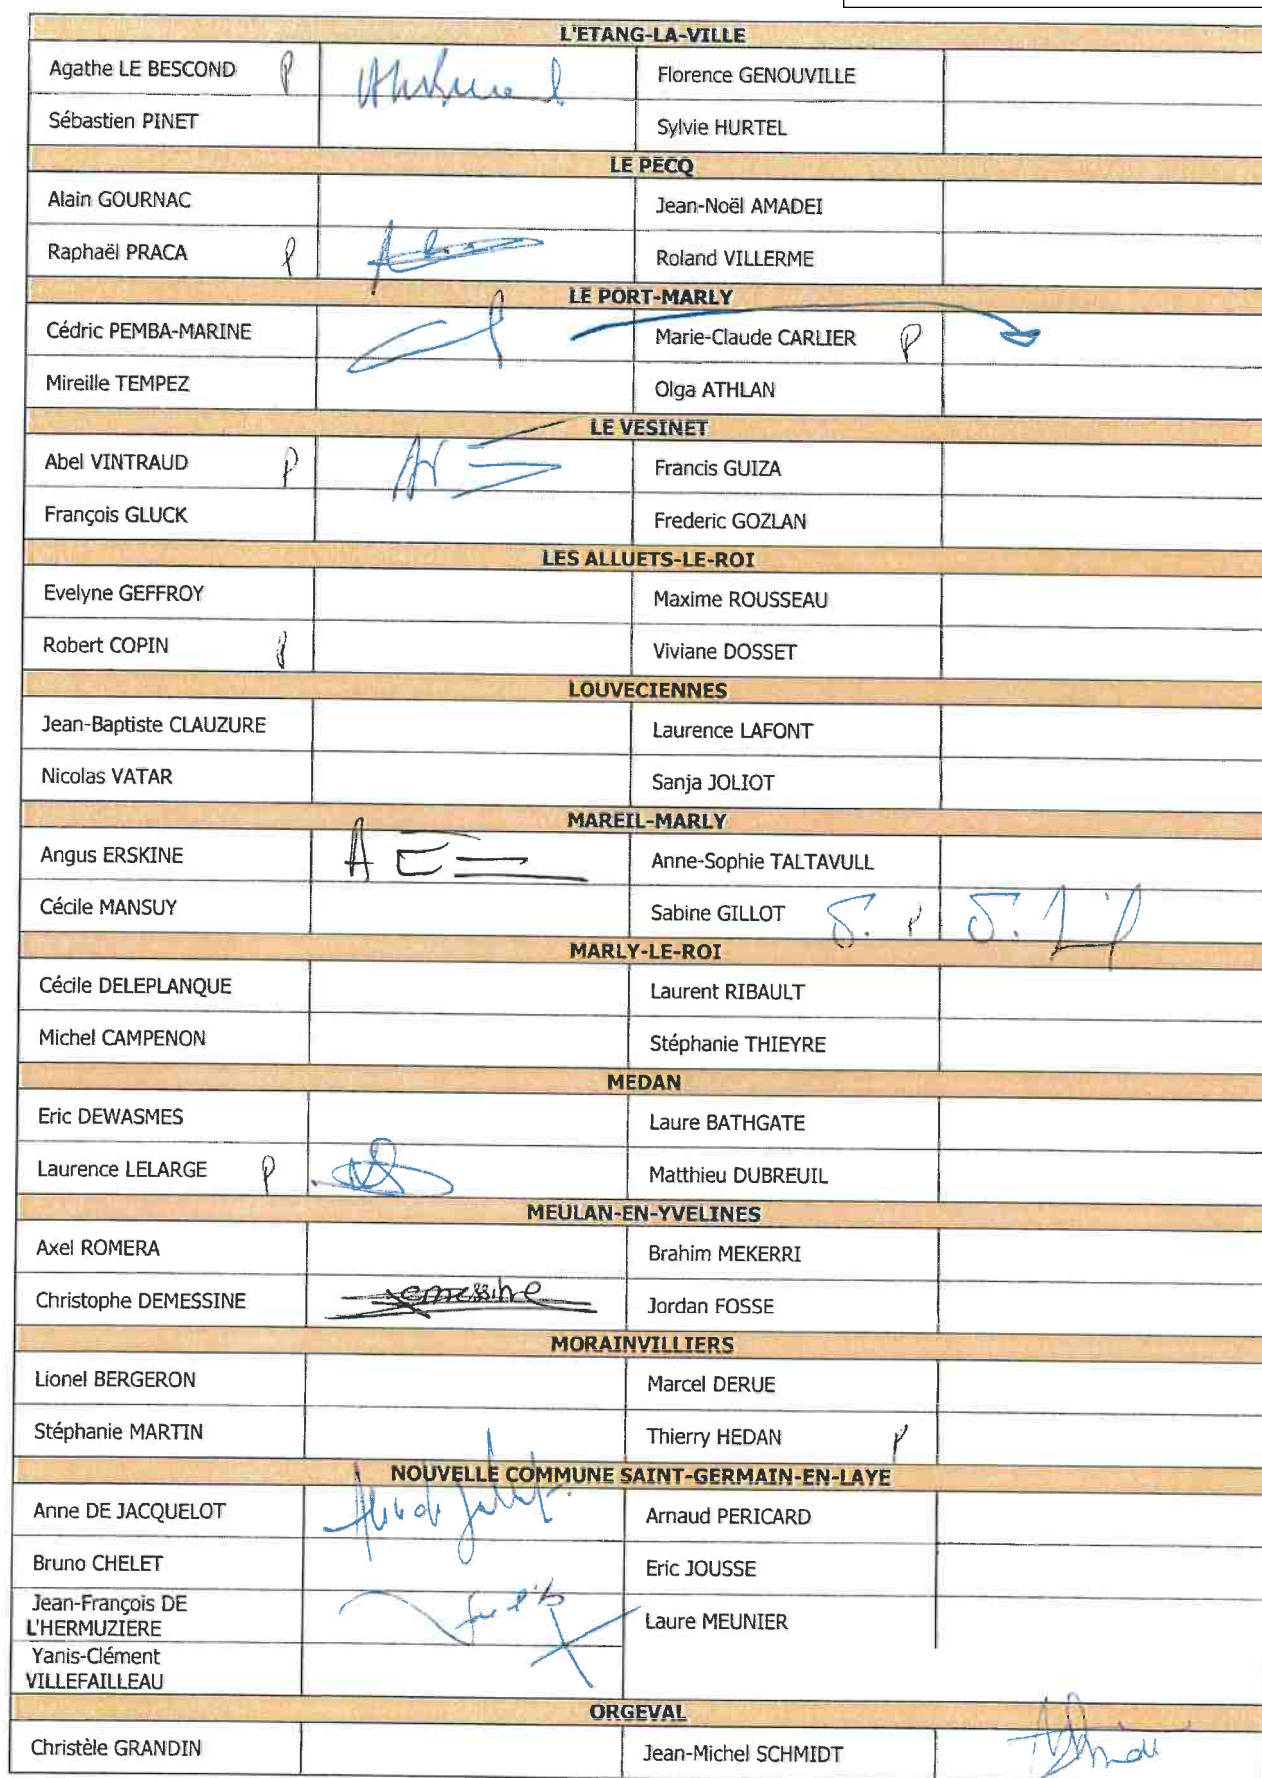 L'ETANG-LA-VILLE
Agathe LE BESCOND P Florence GENOUVILLE
Sébastien PINET Sylvie HURTEL
LE PECQ
Alain GOURNAC Jean-Noël AMADEI
Raphaël PRACA P Roland VILLERME
LE PORT-MARLY
Cédric PEMBA-MARINE Marie-Claude CARLIER P
Mireille TEMPEZ Olga ATHLAN
LE VESINET
Abel VINTRAUD P Francis GUIZA
François GLUCK Frederic GOZLAN
LES ALLUETS-LE-ROI
Evelyne GEFFROY Maxime ROUSSEAU
Robert COPIN P Viviane DOSSET
LOUVECIENNES
Jean-Baptiste CLAUZURE Laurence LAFONT
Nicolas VATAR Sanja JOLIOT
MAREIL-MARLY
Angus ERSKINE A E Anne-Sophie TALTAVULL
Cécile MANSUY Sabine GILLOT S. P S.
MARLY-LE-ROI
Cécile DELEPLANQUE Laurent RIBAULT
Michel CAMPENON Stéphanie THIEYRE
MEDAN
Eric DEWASMES Laure BATHGATE
Laurence LELARGE P Matthieu DUBREUIL
MEULAN-EN-YVELINES
Axel ROMERA Brahim MEKERRI
Christophe DEMESSINE Jordan FOSSE
MORAINVILLIERS
Lionel BERGERON Marcel DERUE
Stéphanie MARTIN Thierry HEDAN P
NOUVELLE COMMUNE SAINT-GERMAIN-EN-LAYE
Anne DE JACQUELOT Arnaud PERICARD
Bruno CHELET Eric JOUSSE
Jean-François DE
L'HERMUZIERE Laure MEUNIER
Yanis-Clément
VILLEFAILLEAU
ORGEVAL
Christèle GRANDIN Jean-Michel SCHMIDT